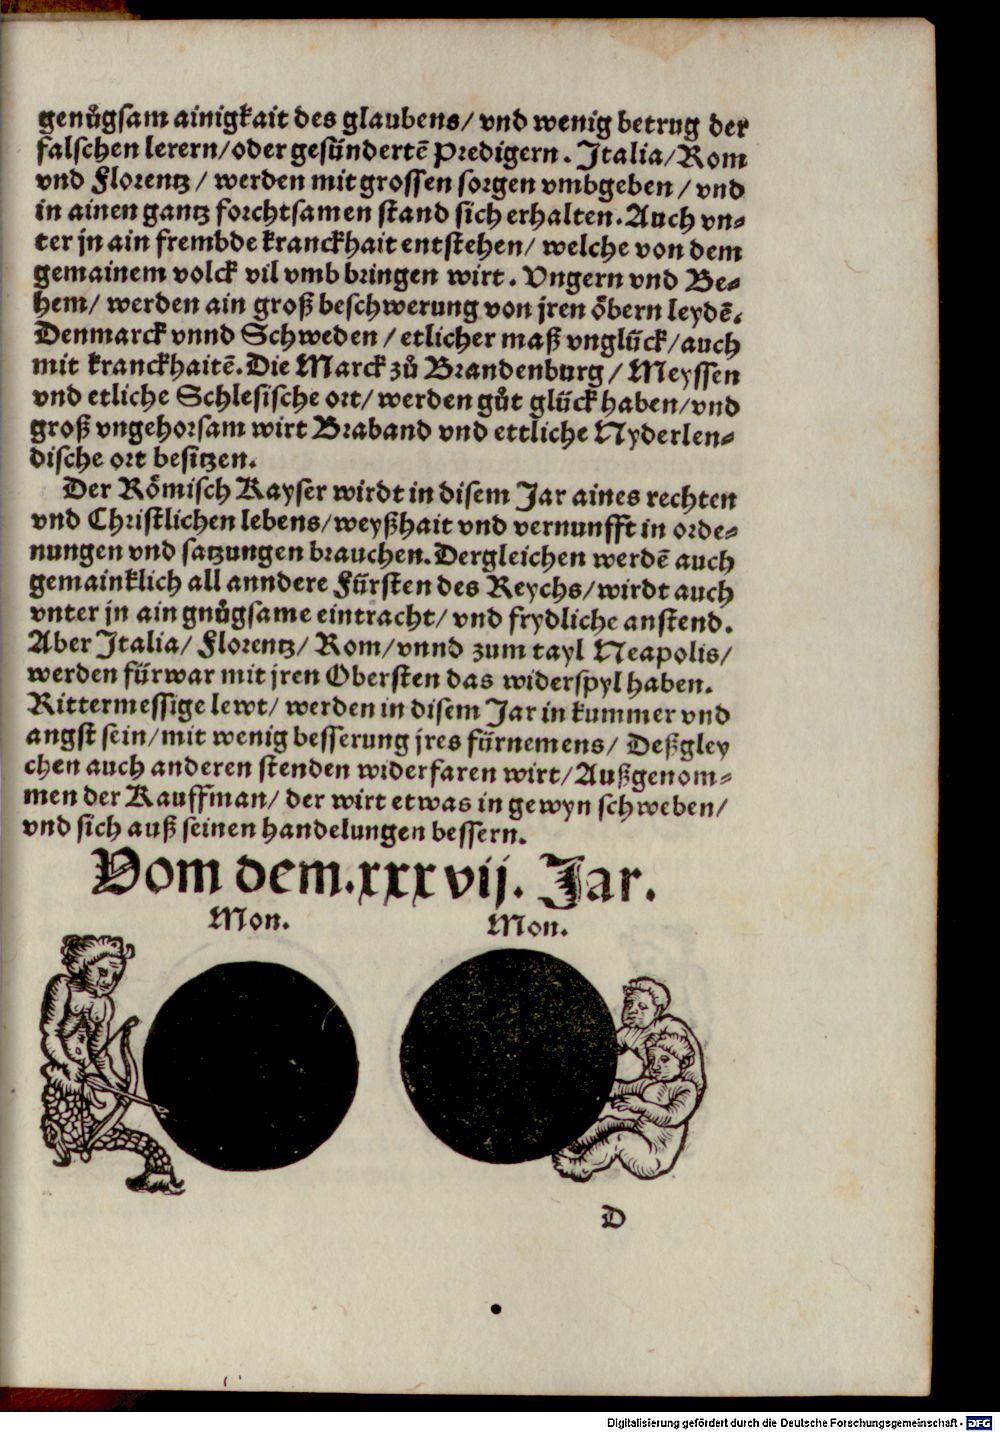 genůgsam ainigkait des glaubens/ vnd wenig betrug der
falschen lerern/oder gesündertē Predigern. Italia/Rom
vnd Florentz/ werden mit grossen sorgen vmbgeben/ vnd
in ainen gantz forchtsamen stand sich erhalten. Auch vn⸗
ter jn ain frembde kranckhait entstehen/ welche von dem
gemainem volck vil vmb bringen wirt. Vngern vnd Be⸗
hem/ werden ain groß beschwerung von jren öbern leydē.
Denmarck vnnd Schweden/ etlicher maß vnglück/auch
mit kranckhaitē. Die Marck zů Brandenburg/ Meyssen
vnd etliche Schlesische ort/ werden gůt glück haben/vnd
groß vngehorsam wirt Braband vnd ettliche Nyderlen⸗
dische ort besitzen.
Der Römisch Kayser wirdt in disem Jar aines rechten
vnd Christlichen lebens/weyßhait vnd vernunfft in orde⸗
nungen vnd satzungen brauchen. Dergleichen werdē auch
gemainklich all anndere Fürsten des Reychs/wirdt auch
vnter jn ain gnůgsame eintracht/ vnd frydliche anstend.
Aber Italia/ Florentz/ Rom/ vnnd zum tayl Neapolis/
werden fürwar mit jren Obersten das widerspyl haben.
Rittermessige lewt/ werden in disem Jar in kummer vnd
angst sein/mit wenig besserung jres fürnemens/ Deßgley
chen auch anderen stenden widerfaren wirt/Außgenom⸗
men der Kauffman/ der wirt etwas in gewyn schweben/
vnd sich auß seinen handelungen bessern.
Vom dem.xxxvij. Jar.
Mon. Mon.
D
Digitalisierung gefördert durch die Deutsche Forschungsgemeinschaft - DFG